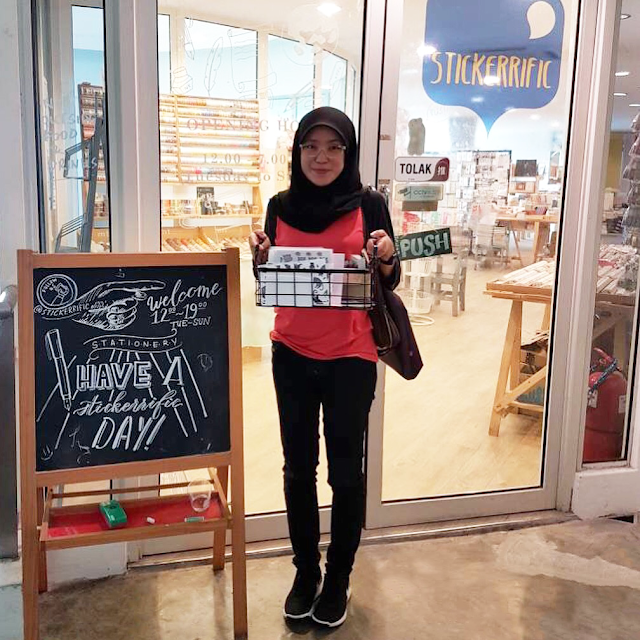 STICKERRIFIC
OPENING HO
12.00
TOLAK
PUSH
@STICKERRIFIC
Welcome
12⁰⁰ 19⁰⁰
TUE-SUN
STATIONERY
HAVE A
stickerrific
DAY!